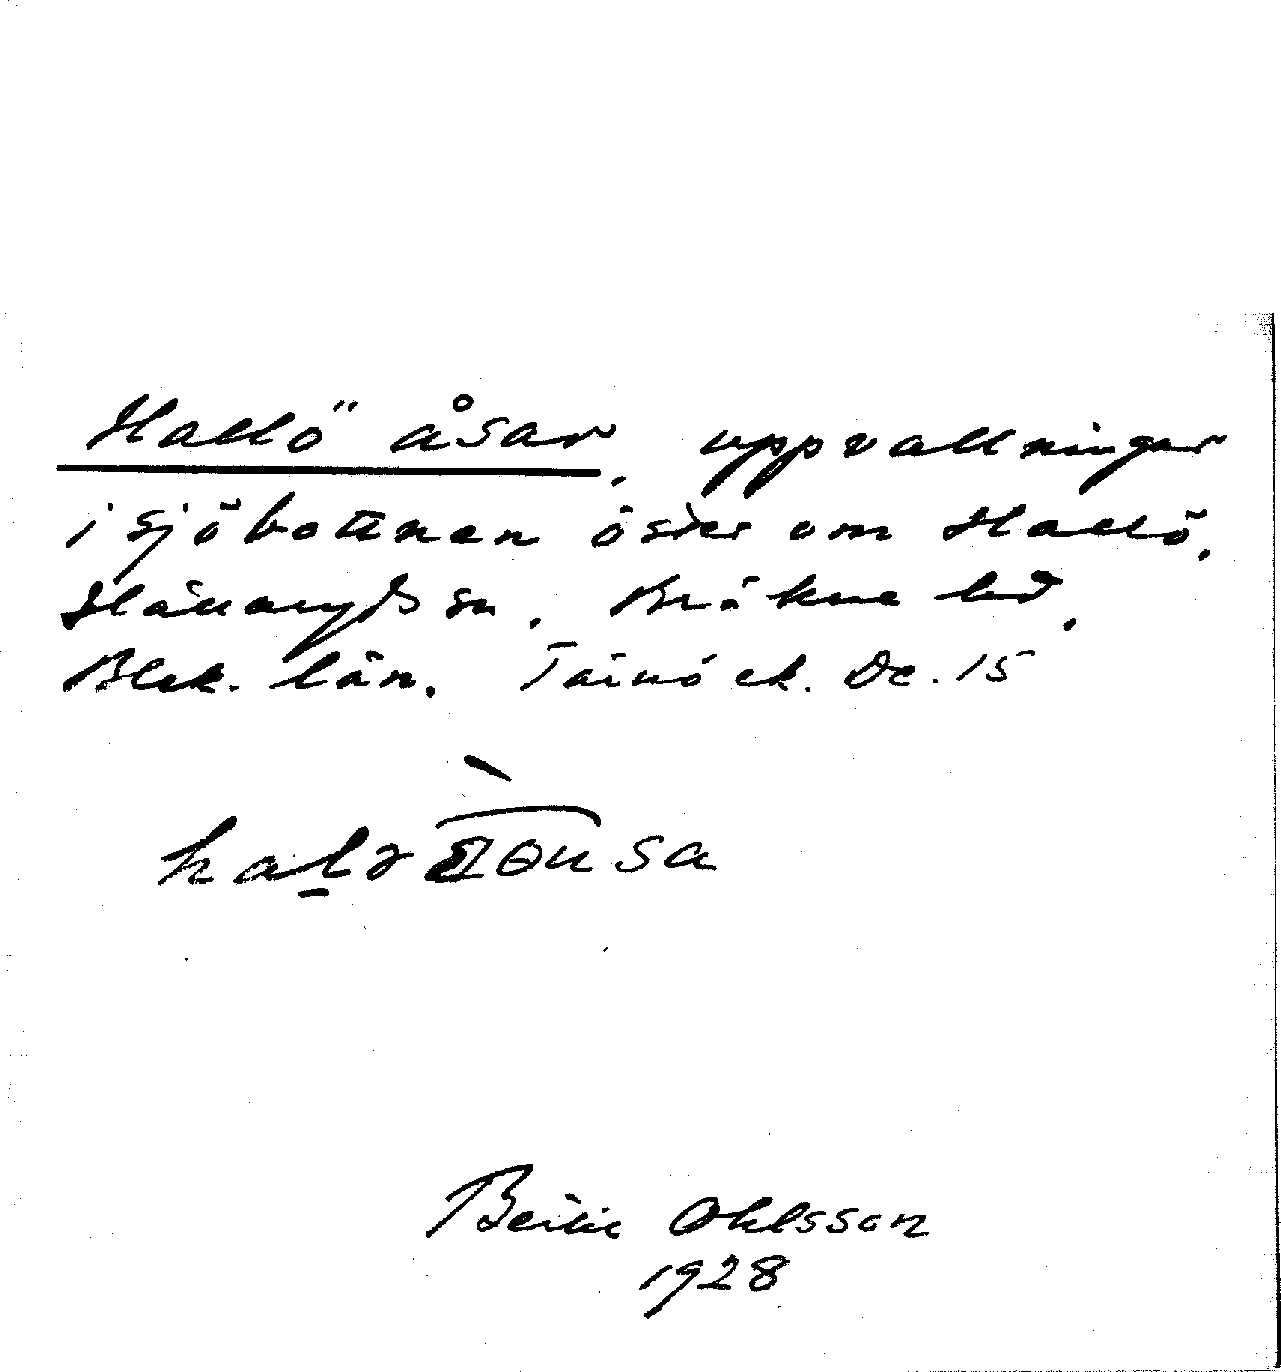 Hallö åsar, uppvallningar
i sjöbottnen öster om Hallö.
Hällaryds sn. Bräkne hd.
Blek. län. Tärnö ek. Dc. 15
Bertil Ohlsson
1928